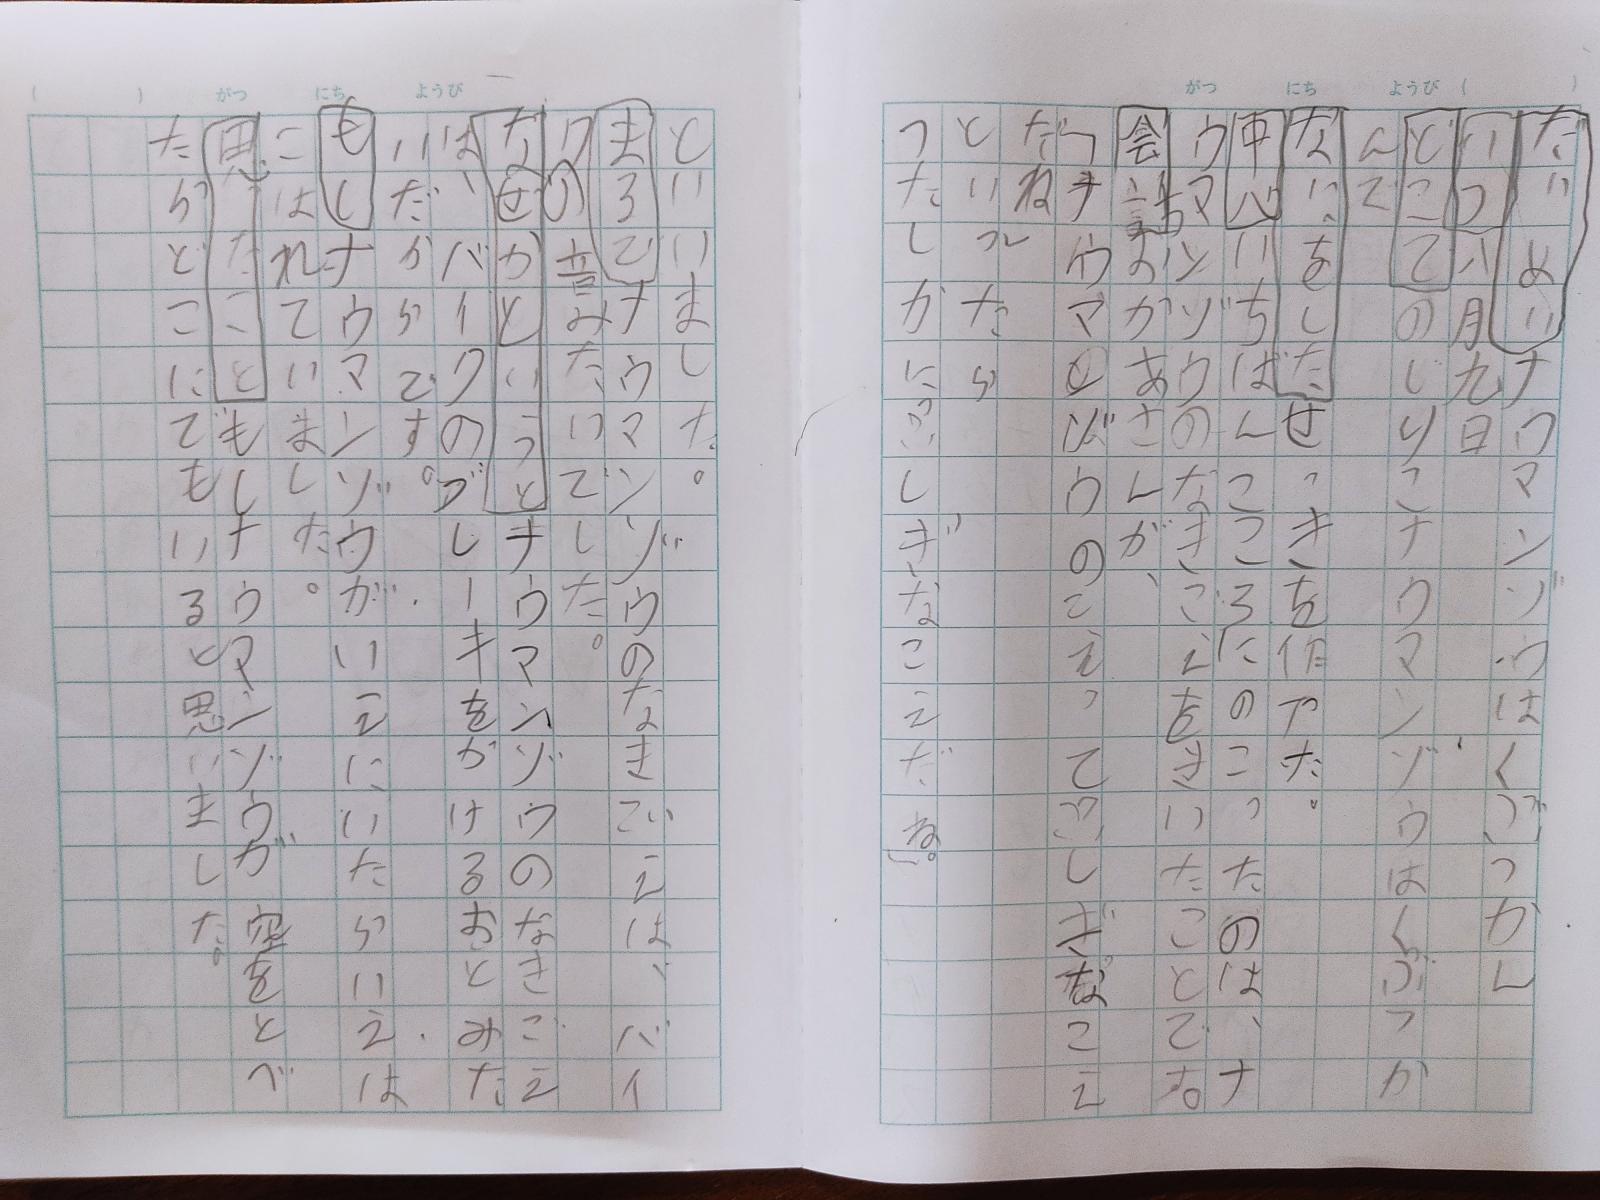 がつ　にち　ようび（　）
だいめいナウマンゾウはくぶつかん
いつ八月九日
どこでのじりこナウマンゾウはくぶつか
んで
なにをしたせっきを作った。
中心いちばんこころにのこったのは、ナ
ウマンゾウのなきごえをきいたことです。
会話おかあさんが、
「ナウマンゾウのこえってふしぎなこえ
だね
といったら
「たしかにふしぎなこえだね。」
（　）がつ　にち　ようび
といいました。
まるでナウマンゾウのなきごえは、バイ
クの音みたいでした。
なぜかというとナウマンゾウのなきごえ
は、バイクのブレーキをかけるおとみた
いだからです。
もしナウマンゾウがいえにいたらいえは
こはれていました。
思ったこともしナウマンゾウが空をとべ
たらどこにでもいると思いました。